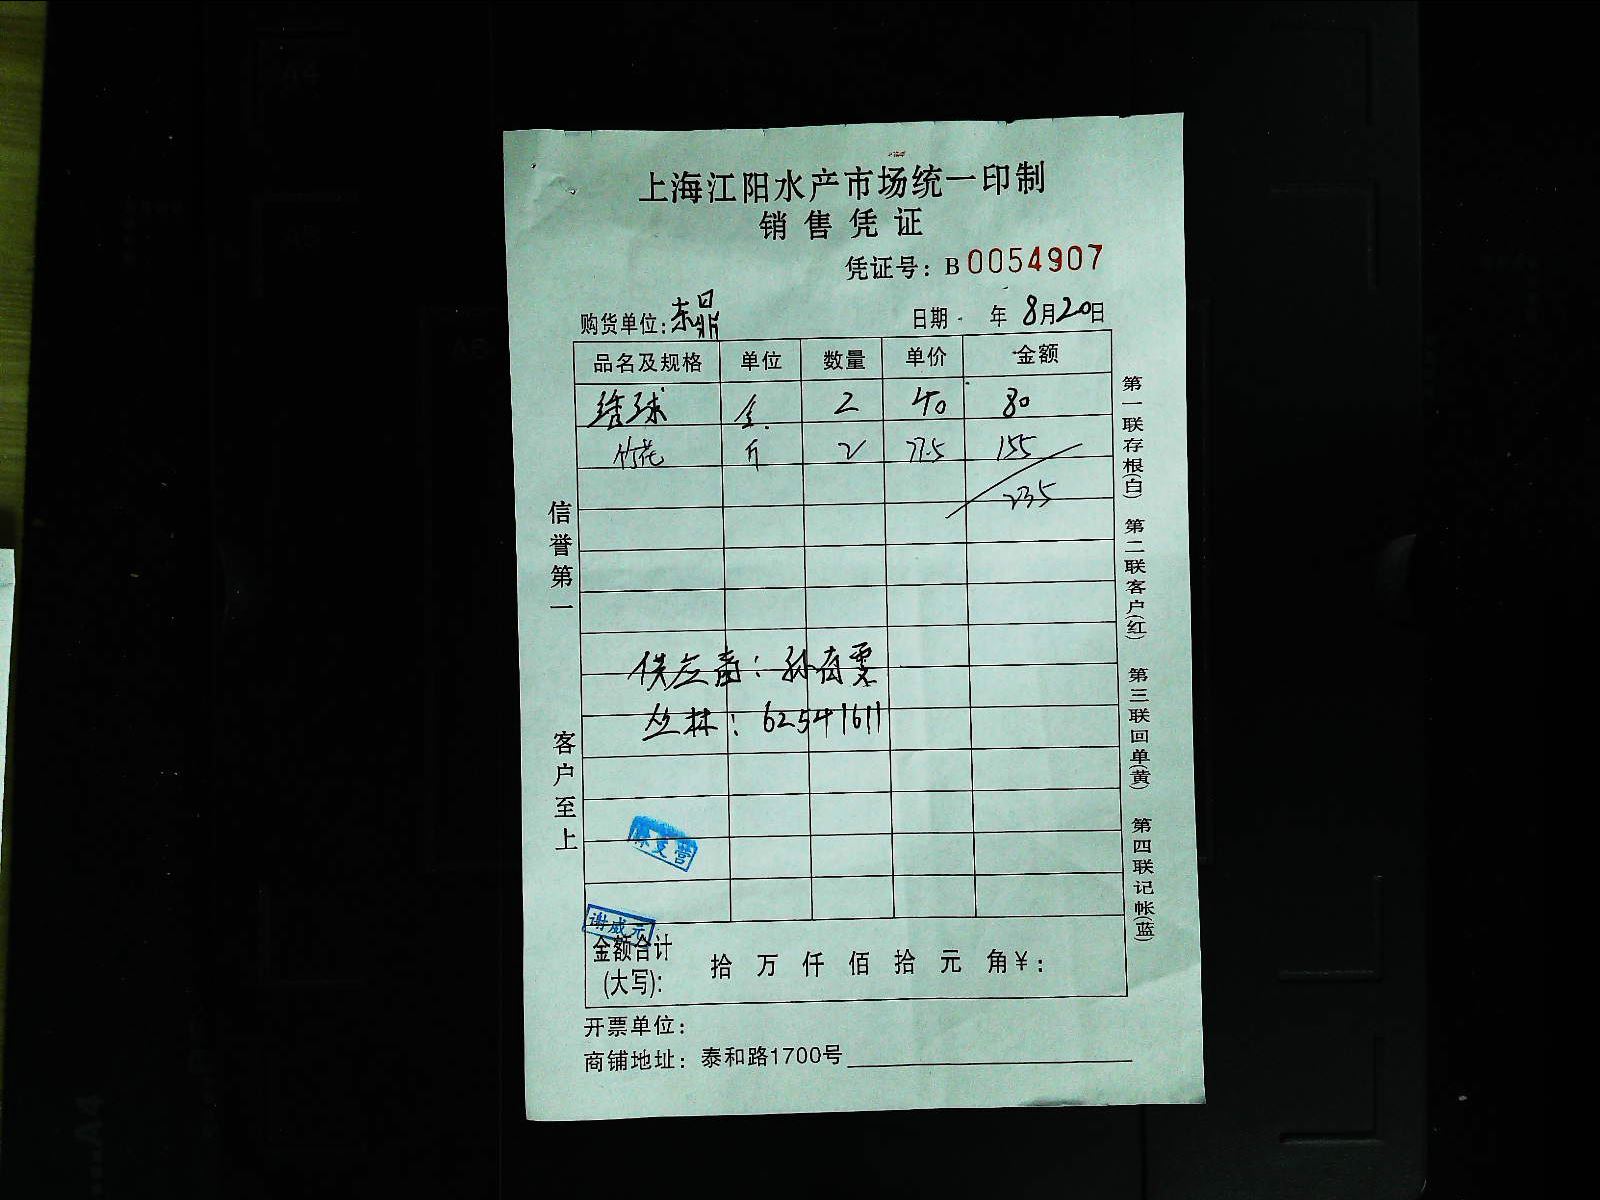 上海江阳水产市场统一印制
销售凭证
凭证号：B0054907
购货单位：东鼎 日期 年 8月20日
品名及规格 单位 数量 单价 金额
球 2 40 80
竹花 斤 2 77.5 155
235
信誉第一
客户至上
供应商：孙有雯
丛林：62541611
谢威元
金额合计(大写)： 拾 万 仟 佰 拾 元 角¥：
开票单位：
商铺地址：泰和路1700号
第一联存根(白) 第二联客户(红) 第三联回单(黄) 第四联记帐(蓝)